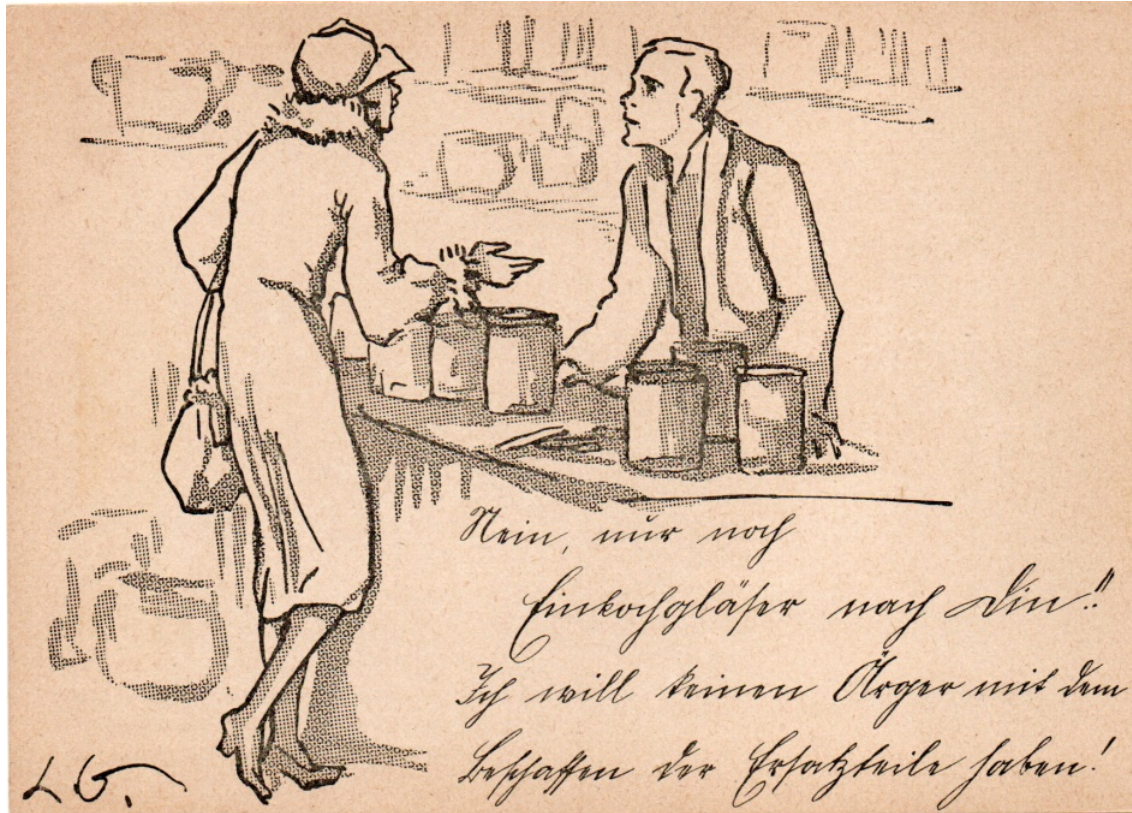 Nein, nur noch
Einkochgläser nach Din!!
Ich will keinen Ärger mit dem
Beschaffen der Ersatzteile haben!
LG.